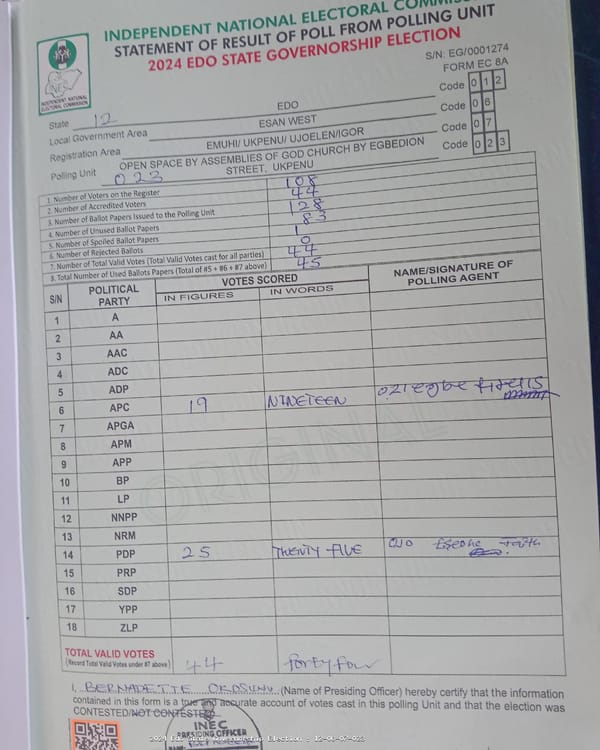 INDEPENDENT NATIONAL ELECTORAL COMMISS
STATEMENT OF RESULT OF POLL FROM POLLING UNIT
2024 EDO STATE GOVERNORSHIP ELECTION
S/N: EG/0001274
FORM EC 8A
INEC
INDEPENDENT NATIONAL ELECTORAL COMMISSION
State 12 EDO Code 0 1 2
Local Government Area ESAN WEST Code 0 6
Registration Area EMUHI/ UKPENU/ UJOELEN/IGOR Code 0 7
Polling Unit 023 OPEN SPACE BY ASSEMBLIES OF GOD CHURCH BY EGBEDION STREET, UKPENU Code 0 2 3
1. Number of Voters on the Register 108
2. Number of Accredited Voters 44
3. Number of Ballot Papers Issued to the Polling Unit 128
4. Number of Unused Ballot Papers 83
5. Number of Spoiled Ballot Papers 1
6. Number of Rejected Ballots 0
7. Number of Total Valid Votes (Total Valid Votes cast for all parties) 44
8. Total Number of Used Ballots Papers (Total of #5 + #6 + #7 above) 45
S/N POLITICAL PARTY VOTES SCORED NAME/SIGNATURE OF POLLING AGENT
IN FIGURES IN WORDS
1 A
2 AA
3 AAC
4 ADC
5 ADP
6 APC 19 NINETEEN
7 APGA
8 APM
9 APP
10 BP
11 LP
12 NNPP
13 NRM
14 PDP 25 TWENTY FIVE Eseohe Faith
15 PRP
16 SDP
17 YPP
18 ZLP
ORIGINAL
TOTAL VALID VOTES
(Record Total Valid Votes under #7 above) 44 forty four
I, BERNADETTE OKOSUNU (Name of Presiding Officer) hereby certify that the information
contained in this form is a true and accurate account of votes cast in this polling Unit and that the election was
CONTESTED/NOT CONTESTED
INEC
PRESIDING OFFICER
2024 Edo State Governorship Election : 12-06-07-023